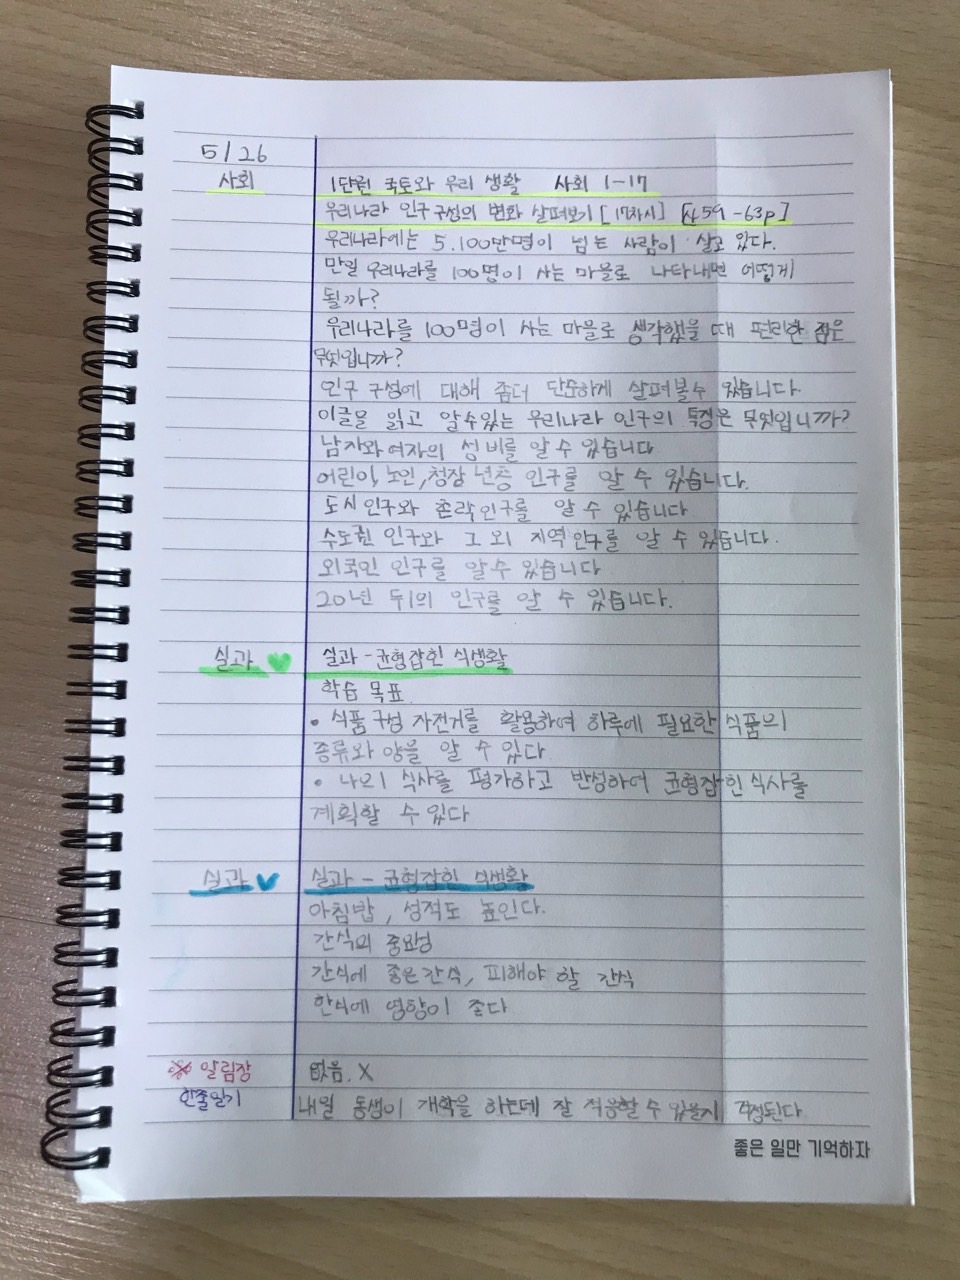 5/26
사회
1단원 국토와 우리 생활 사회 1-17
우리나라 인구 구성의 변화 살펴보기 [17차시] [사 59-63p]
우리나라에는 5.100만명이 넘는 사람이 살고 있다.
만일 우리나라를 100명이 사는 마을로 나타내면 어떻게
될까?
우리나라를 100명이 사는 마을로 생각했을 때 편리한 점은
무엇입니까?
인구 구성에 대해 좀더 단순하게 살펴볼수 있습니다.
이글을 읽고 알수있는 우리나라 인구의 특징은 무엇입니까?
남자와 여자의 성비를 알 수 있습니다
어린이, 노인, 청장년층 인구를 알 수 있습니다.
도시 인구와 촌락인구를 알 수 있습니다.
수도권 인구와 그 외 지역 인구를 알 수 있습니다.
외국인 인구를 알 수 있습니다
20년 뒤의 인구를 알 수 있습니다.
실과 실과 - 균형잡힌 식생활
학습 목표
• 식품 구성 자전거를 활용하여 하루에 필요한 식품의
종류와 양을 알 수 있다
• 나의 식사를 평가하고 반성하여 균형잡힌 식사를
계획할 수 있다
실과 실과 - 균형잡힌 식생활
아침밥, 성적도 높인다.
간식의 중요성
간식에 좋은간식, 피해야 할 간식
한식에 영향이 좋다
※ 알림장 없음. X
한줄일기 내일 동생이 개학을 하는데 잘 적응할 수 있을지 걱정된다
좋은 일만 기억하자